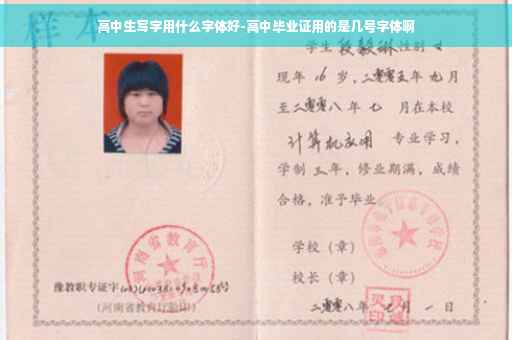 高中生写字用什么字体好-高中毕业证用的是几号字体啊
样本
学生 段毅琳 性别 女
现年 16 岁，二零零五年 九 月
至二零零八年 七 月在本校
计算机应用 专业学习，
学制 三 年，修业期满，成绩
合格，准予毕业
学校（章）
校长（章）
二零零八年 月 一 日
河南省教育厅
豫教职专证字
（河南省教育厅验印）